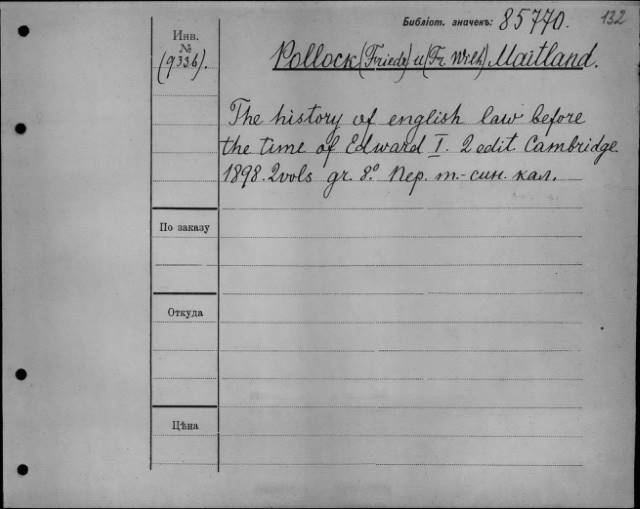 Библіот. значекъ: 85770. 132
Инв.
№
(9336).
Pollock (Friedr) и (Fr. Wilh) Maitland.
The history of english law before
the time of Edward I. 2 edit. Cambridge
1898. 2 vols gr. 8.° Пер. т.-син. кал.
По заказу
Откуда
Цѣна